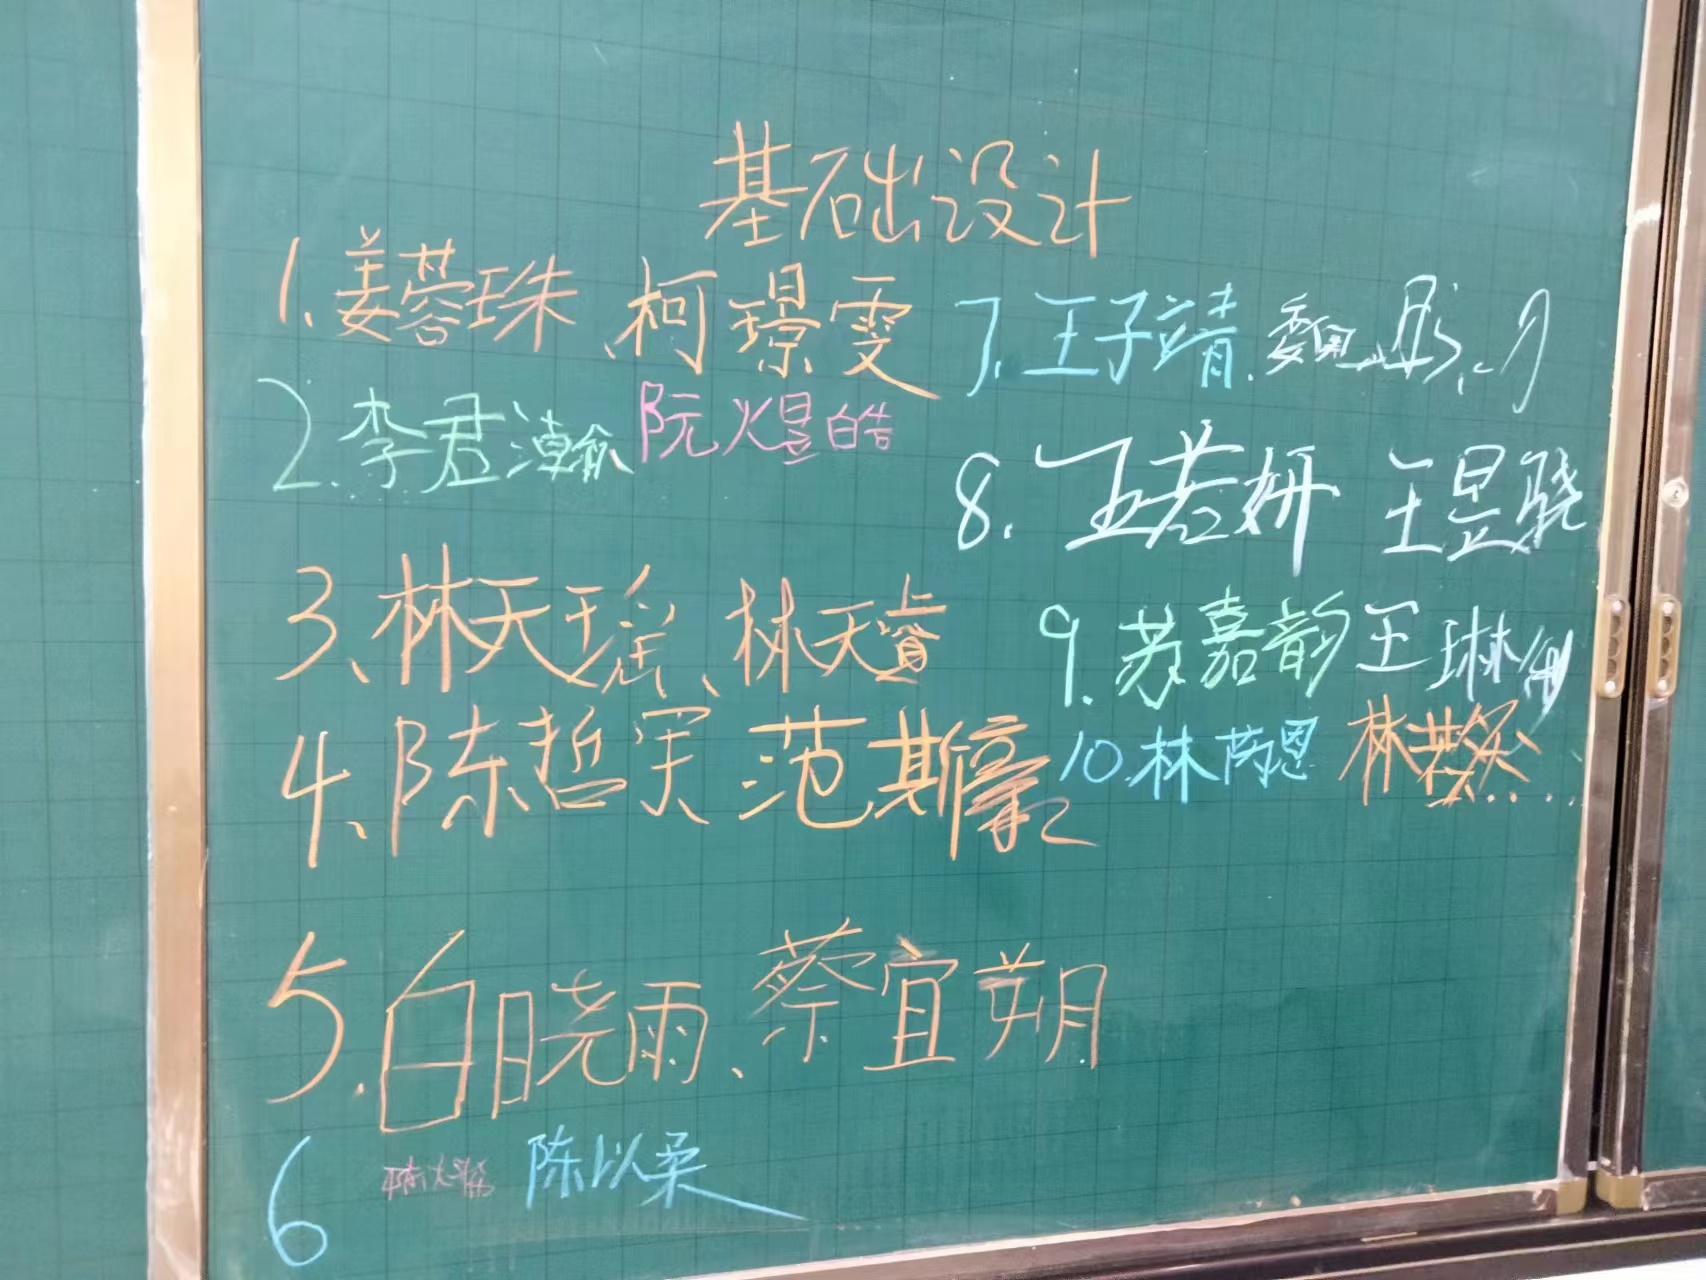 基础设计
1.姜蓉珠、柯璟雯
2.李君瀚 阮煜皓
3、林天瑶、林天睿
4、陈哲 范斯豪
5.白晓雨、蔡宜朔
6 陈以柔
7.王子靖.
8.王若妍 王昱骁
9.苏嘉韵 王琳
10.林芮恩 林